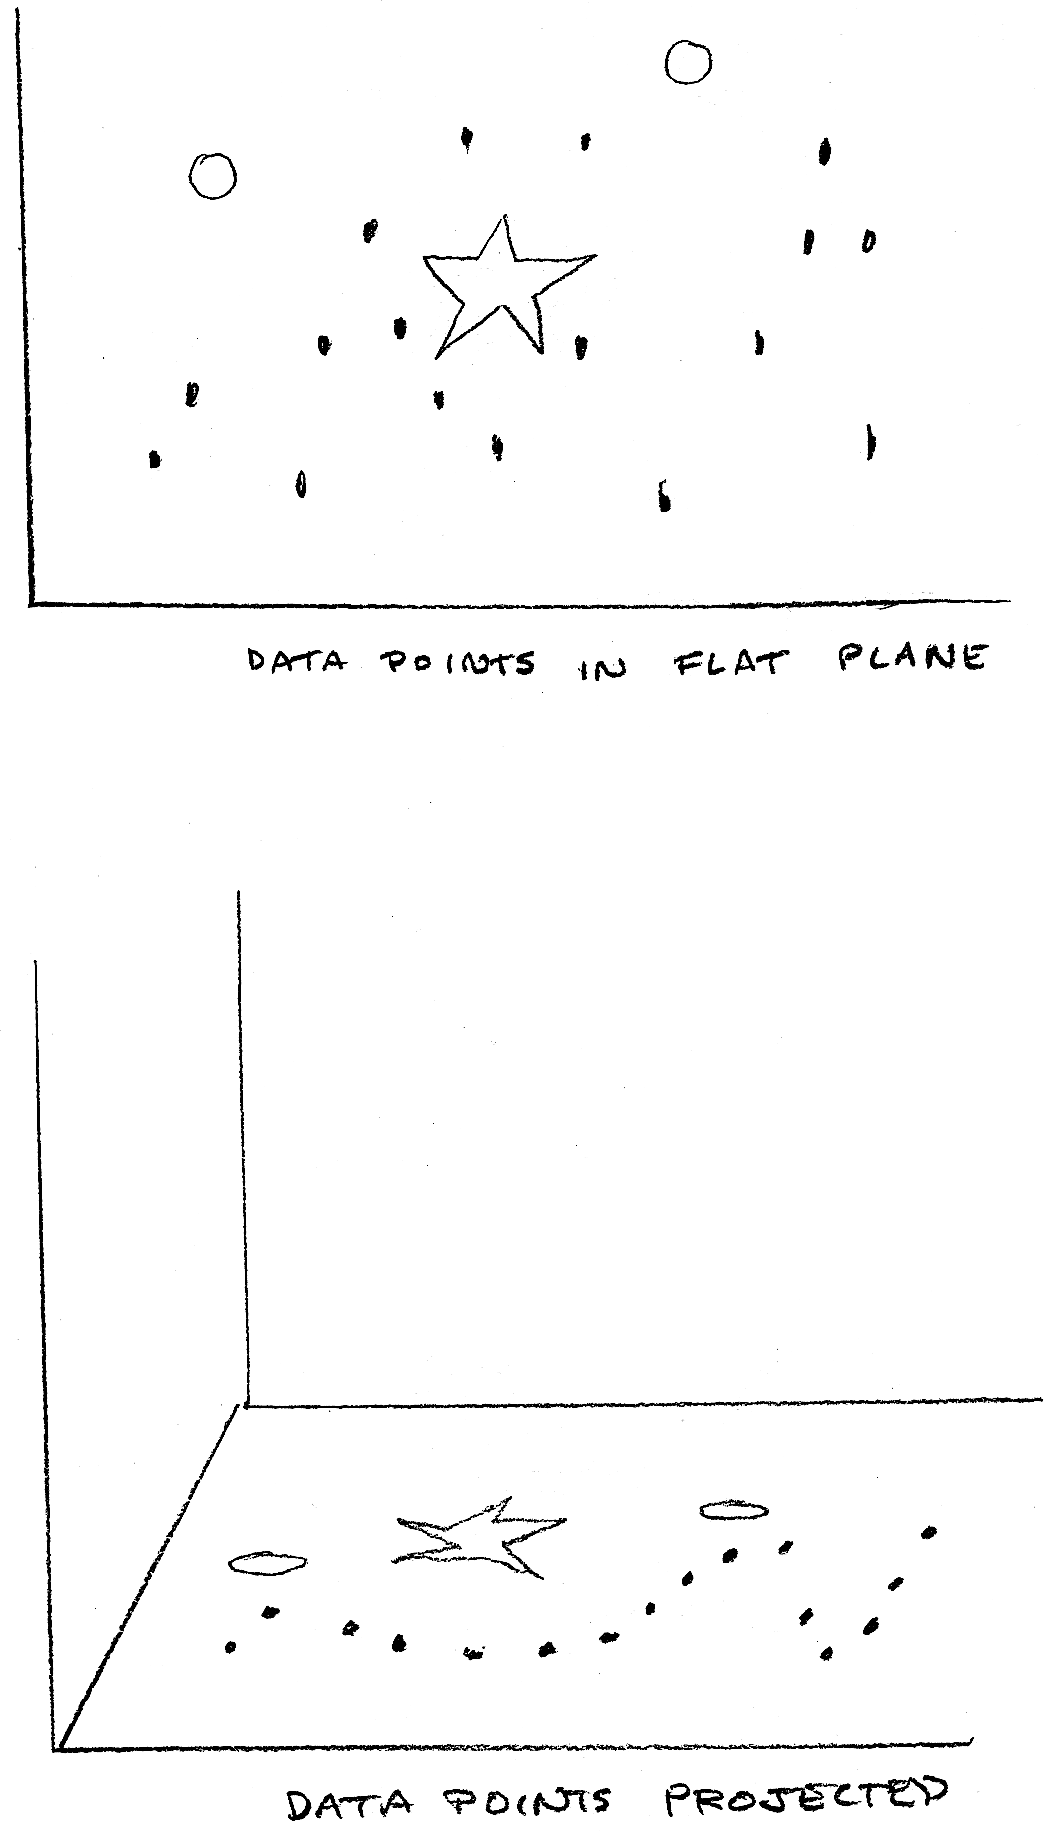 DATA POINTS IN FLAT PLANE
DATA POINTS PROJECTED